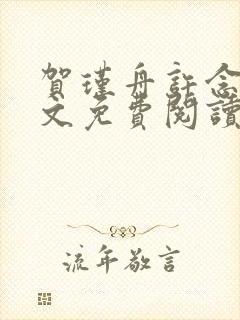 賀瑾舟許念
文免費閱讀
流年敬言